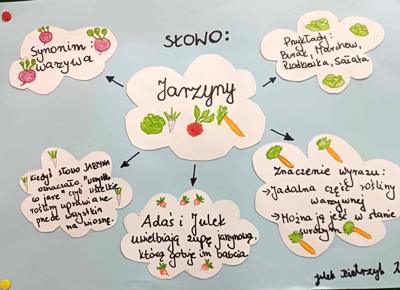 SŁOWO:
Synonim:
warzywa
Jarzyny
Przykłady:
Burak, Marchew,
Rzodkiewka, Sałata
Kiedyś słowo JARZYNA
oznaczało "wszystko
co jare" czyli wszelkie
rośliny uprawiane
przede wszystkim
na wiosnę.
Adaś i Julek
uwielbiają zupę jarzynową,
którą gotuje im babcia.
Znaczenie wyrazu:
→ Jadalna część rośliny
warzywnej
→ Można ją jeść w stanie
surowym
Julek